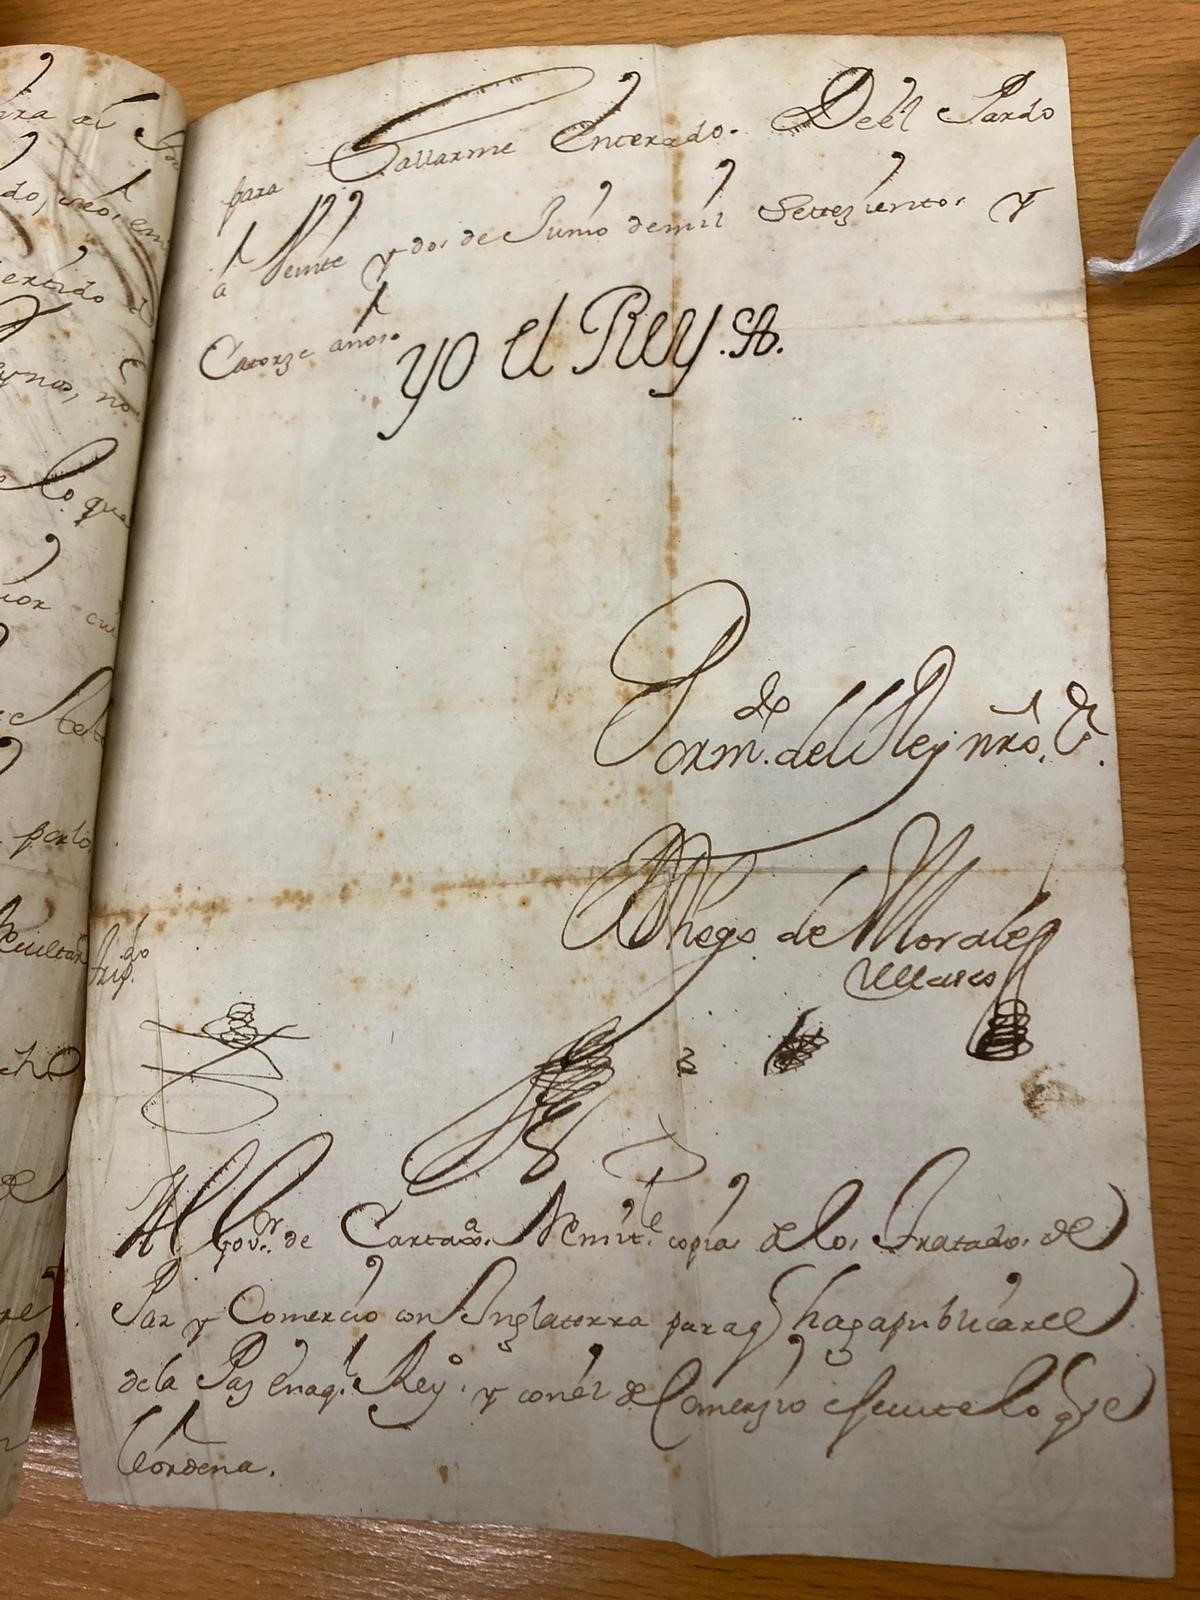 ra al
para Hallarme Enterado. De el Pardo
do,
á Veinte y dos de Junio de mil Settezientos y
Catorze años.
yo el Rey.
ynos, no
lo qua
Por m.do del Rey nrõ. S.r
Dhego de Morales
Velasco
Al Gov.or de Cartax.a Remit.le copias de los Tratados de
Paz y Comercio con Inglaterra para q haga publicar el
de la Paz en aq.l Rey.o y con el de Comerzio ejecute lo q se
le ordena.